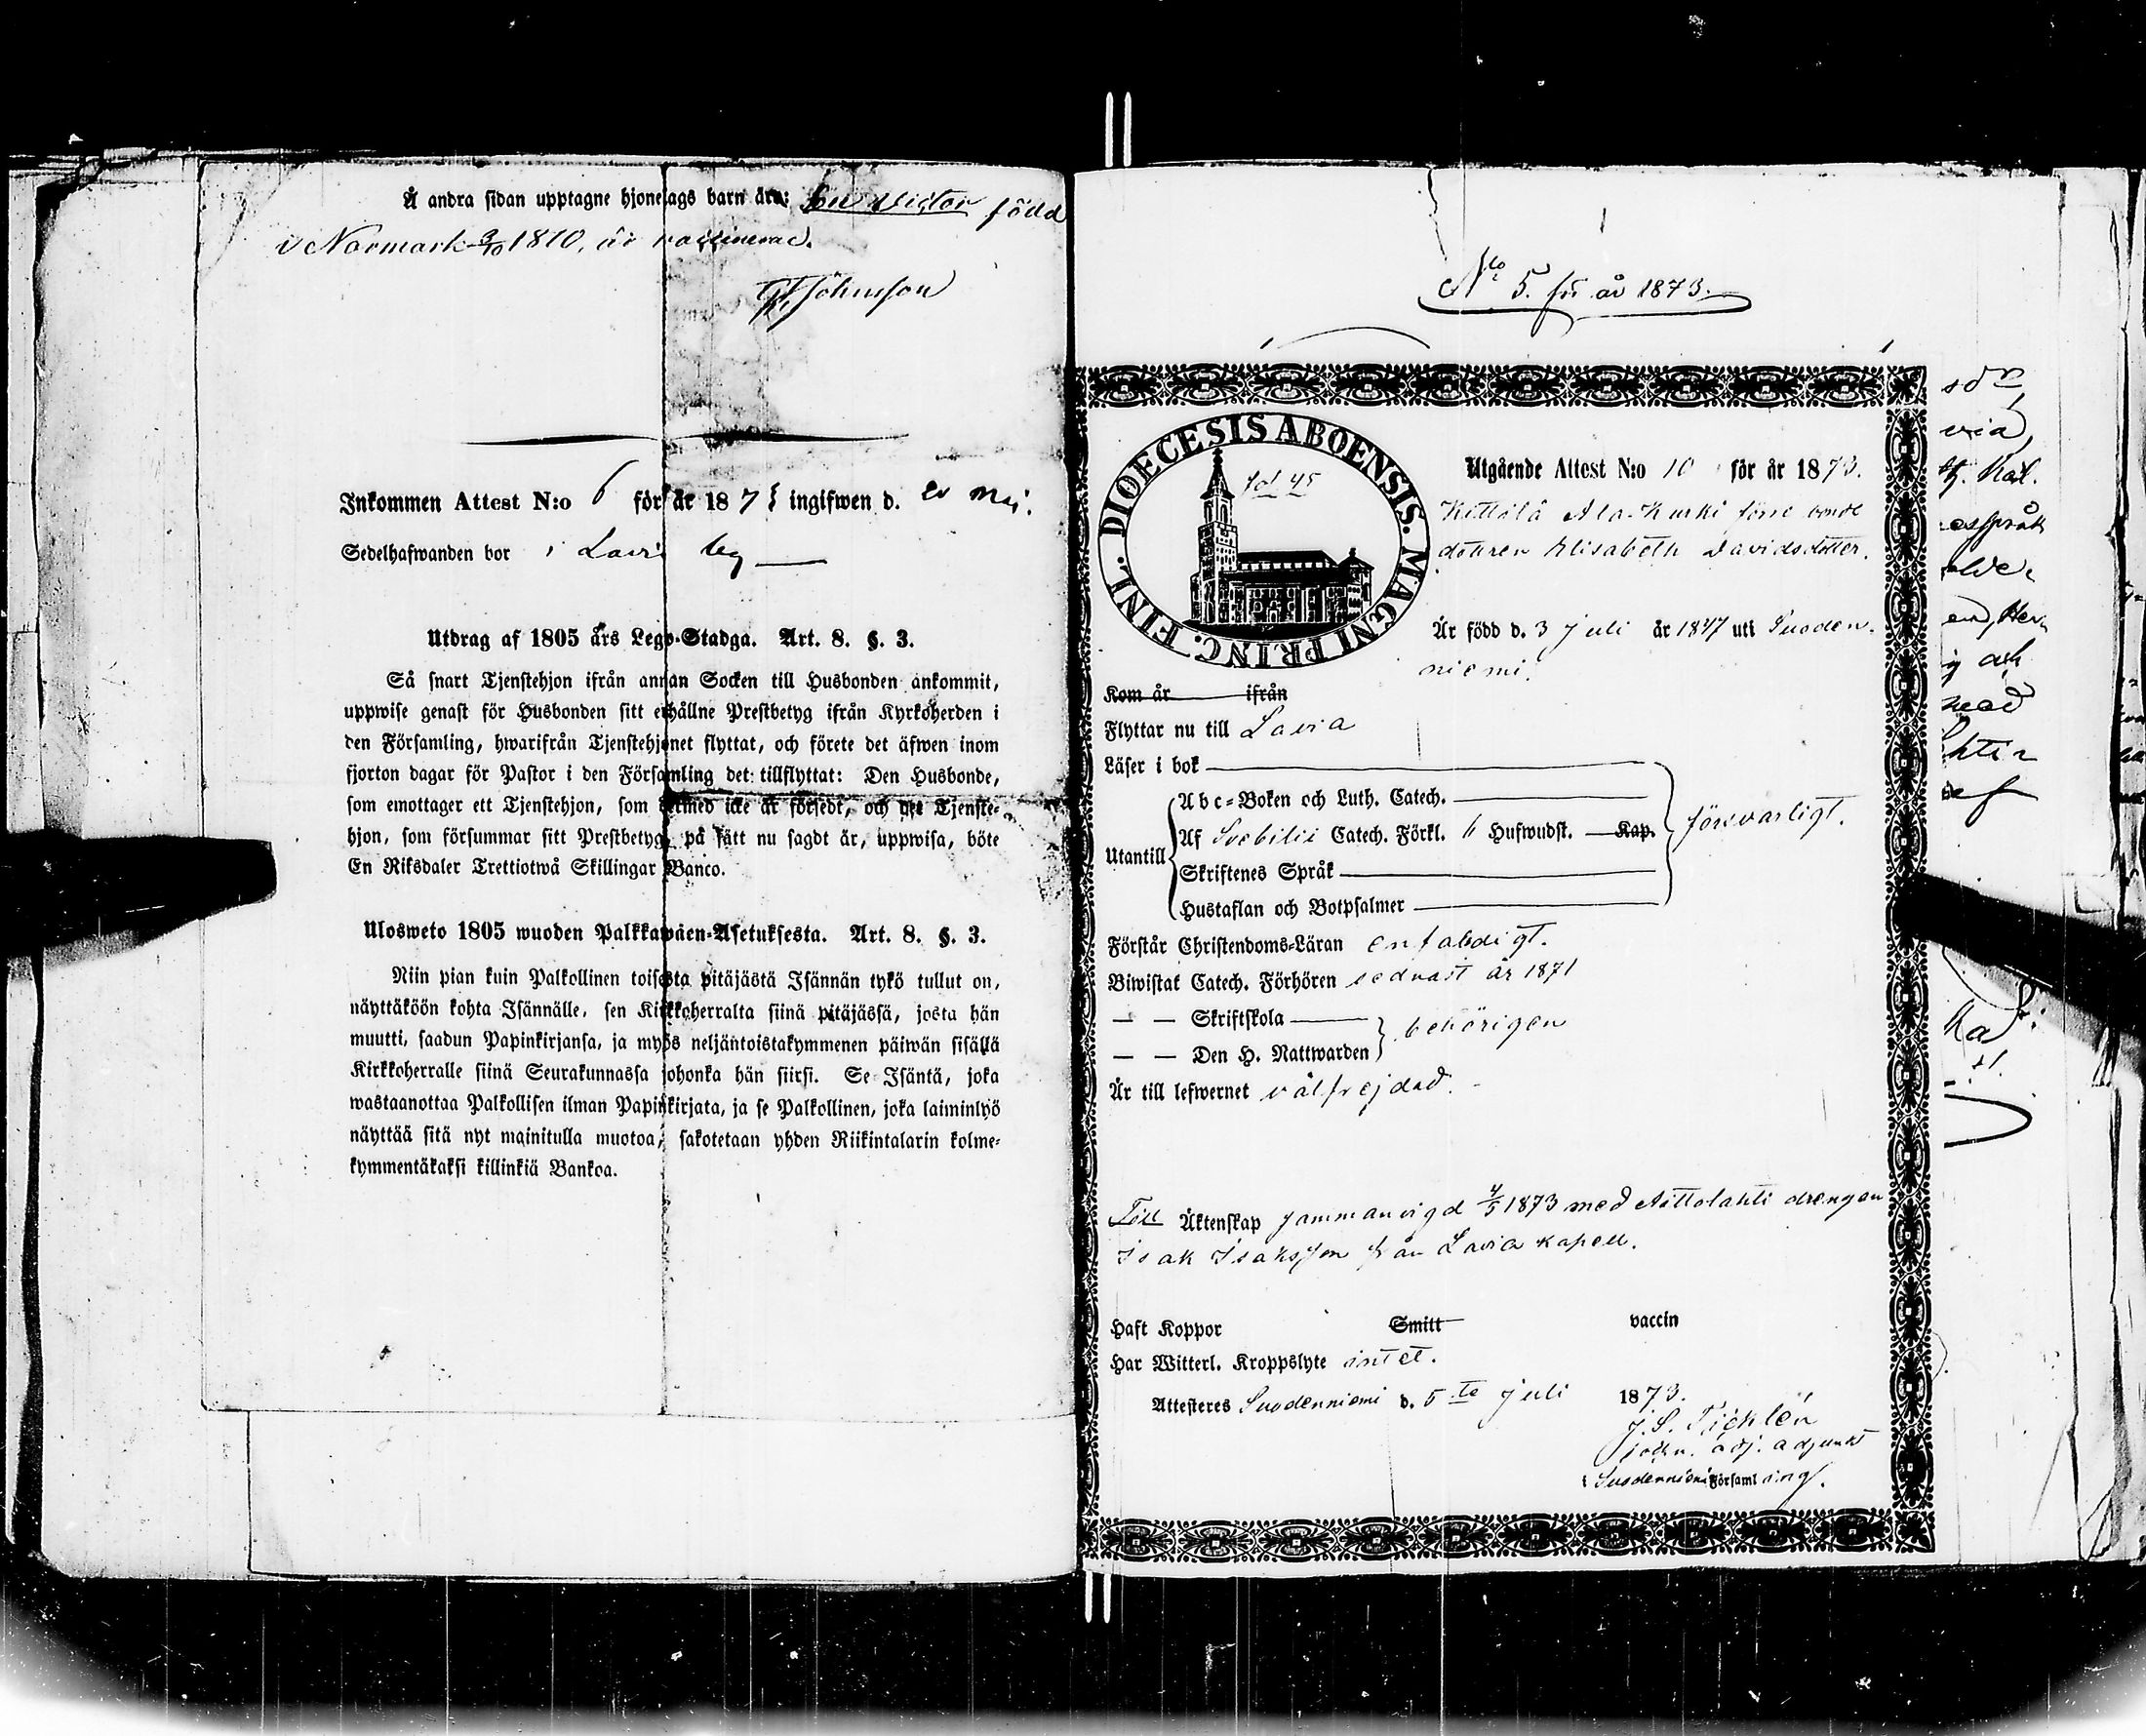 Å andra sidan upptagne hjonelags barn äro: Victor född
i Normark 3/10 1870, är vaccinerad.
Inkommen Attest N:o 6 för år 187 ingifwen d. maj.
Sedelhafwanden bor i Lavia by
Utdrag af 1805 års Lego-Stadga. Art. 8. §. 3.
Så snart Tjenstehjon ifrån annan Socken till Husbonden ankommit,
uppwise genast för Husbonden sitt erhållne Prestbetyg ifrån Kyrkoherden i
den Församling, hwarifrån Tjenstehjonet flyttat, och förete det äfwen inom
fjorton dagar för Pastor i den Församling det tillflyttat: Den Husbonde,
som emottager ett Tjenstehjon, som dermed icke är försedt, och det Tjenste-
hjon, som försummar sitt Prestbetyg, på sätt nu sagdt är, uppwisa, böte
En Riksdaler Trettiotwå Skillingar Banco.
Ulosweto 1805 wuoden Palkkawäen-Asetuksesta. Art. 8. §. 3.
Niin pian kuin Palkollinen toisesta pitäjästä Isännän tykö tullut on,
näyttäköön kohta Isännälle, sen Kirkkoherralta siinä pitäjässä, josta hän
muutti, saadun Papinkirjansa, ja myös neljäntoistakymmenen päiwän sisällä
Kirkkoherralle siinä Seurakunnassa johonka hän siirsi. Se Isäntä, joka
wastaanottaa Palkollisen ilman Papinkirjata, ja se Palkollinen, joka laiminlyö
näyttää sitä nyt mainitulla muotoa, sakotetaan yhden Riikintalarin kolme-
kymmentäkaksi killinkiä Bankoa.
No 5. för år 1873.
DIOECESIS ABOENSIS. MAGNI PRINC. FINL.
fol 45
Utgående Attest N:o 10 för år 1873.
Kittilä Ala-Kurki förre bonde
dottren Elisabeth Davidsdotter.
Är född d. 3 Juli år 1847 uti Suoden-
niemi.
Kom år ifrån
Flyttar nu till Lavia
Läser i bok
Utantill
Abc-Boken och Luth. Catech.
Af Svebilii Catech. Förkl. 6 Hufwudst. Kap.
försvarligt.
Skriftenes Språk
Hustaflan och Botpsalmer
Förstår Christendoms-Läran enfaldigt.
Biwistat Catech. Förhören sednast år 1871
— — Skriftskola
behörigen
— — Den H. Nattwarden
Är till lefwernet välfrejdad.
Till Äktenskap sammanvigd 4/5 1873 med Aittolahti drengen
Isak Isaksson från Lavia kapell.
Haft Koppor Smitt vaccin
Har Witterl. Kroppslyte intet.
Attesteres Suodenniemi d. 5te Juli 1873.
J. S. Ticklén
adj. adjunkt
Suodenniemi Församling.
via